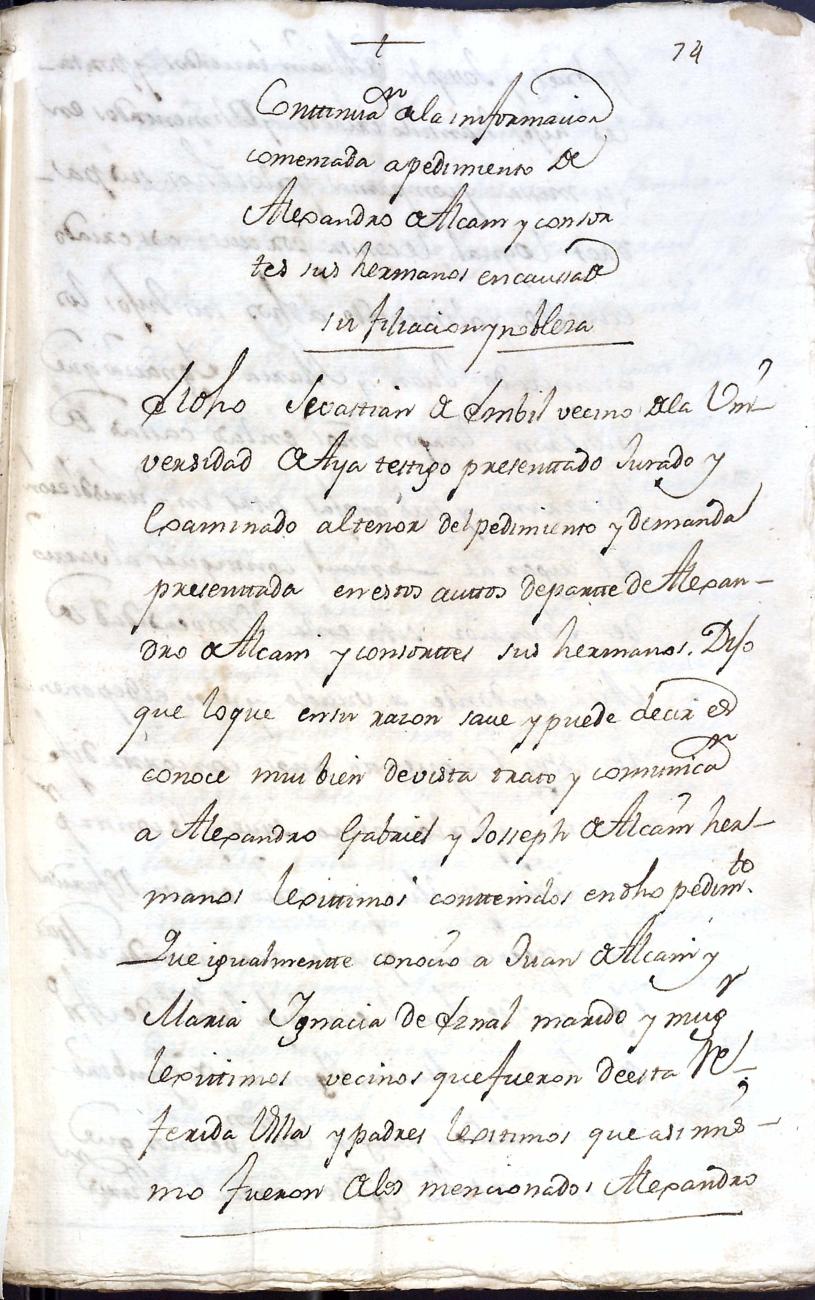 74
Continua.on de la informacion
comenzada a pedimento de
Alexandro de Alcain y consor
tes sus hermanos en caussa de
su filiacion y nobleza
El dho Sevastian de Embil vecino de la Uni-
versidad de Aya testigo presenttado Jurado y
Examinado al tenor del pedimiento y demanda
presenttada en estos auttos de partte de Alexan-
dro de Alcain y consorttes sus hermanos. Dijo
que lo que en su razon save y puede decir es
conoce mui bien de vista trato y comunica.on
a Alexandro Gabriel y Josseph de Alcain her-
manos lexittimos conttenidos en dho pedim.to
Que igualmentte conocio a Juan de Alcain y
Maria Ignacia de Iznal marido y mug.r
lexittimos vecinos que fueron de esta Re-
ferida Villa y padres lexitimos que asi mis-
mo fueron de los mencionados Alexandro